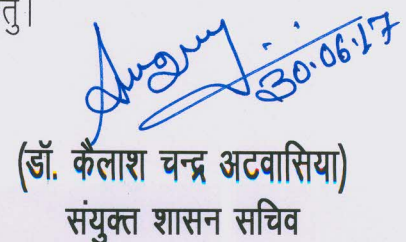 तु।
30.06.17
(डॉ. कैलाश चन्द्र अटवासिया)
संयुक्त शासन सचिव